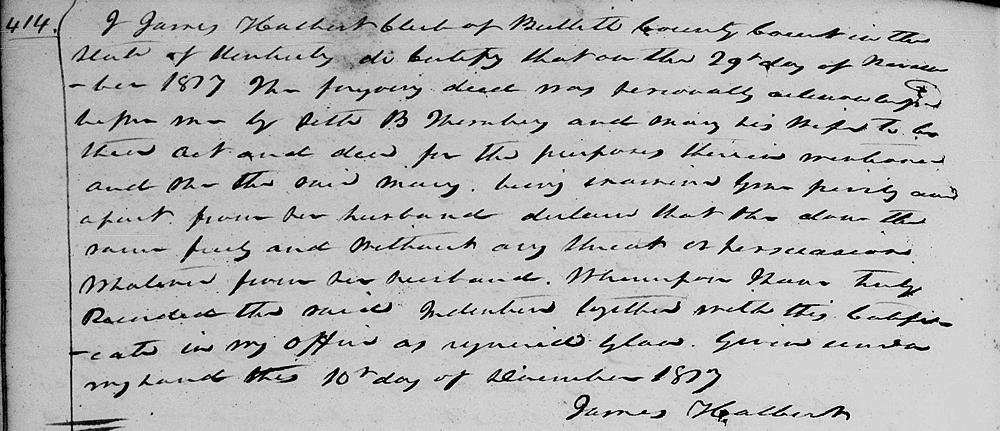 414. I James Halbert Clerk of Bullitt County Court in the
State of Kentucky do Certify that on the 29th day of Novem
-ber 1817 The forgoing deed was personally acknowledged
before me by Seth B Thornbery and Mary his Wife to be
their Act and deed for the purposes therein mentioned
and She the said Mary. being examined by me privily and
apart from her husband declared that She done the
same freely and without any threat or persuasion
Whatever from her husband. Whereupon I have truly
Recorded the said Indenture together with this Certifi-
-cate in my Office as required by law. Given under
my hand this 10th day of December 1817
James Halbert